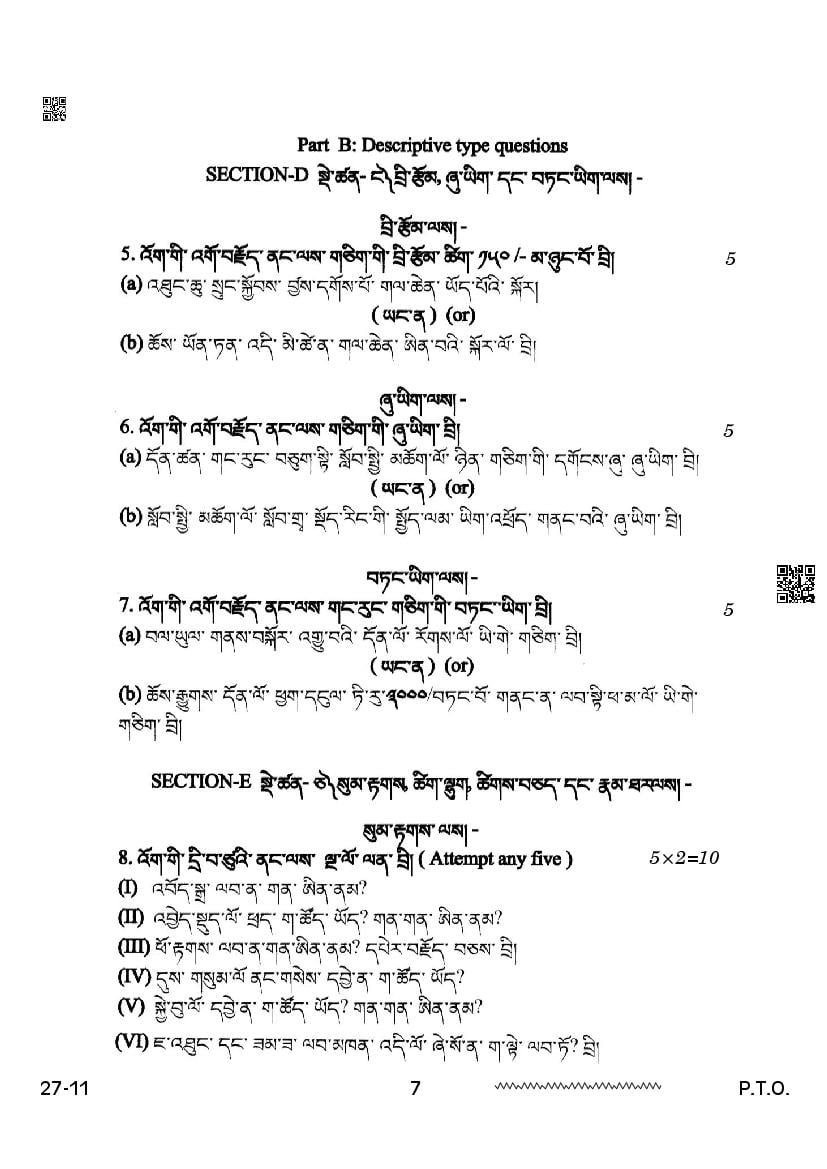 Part B: Descriptive type questions
SECTION-D སྡེ་ཚན- ང༽ བྲི་རྩོམ, ཞུ་ཡིག་ དང་ བཏང་ཡིག་ལས། -
བྲི་རྩོམ་ལས། -
5. འོག་གི་ འགོ་བརྗོད་ ནང་ལས་ གཅིག་གི་ བྲི་རྩོམ་ ཚིག་ ༡༥༠ /- མ་ཉུང་བོ་ བྲི། 5
(a) འཐུང་ཆུ་ སྲུང་སྐྱོབས་ བྱས་དགོས་པོ་ གལ་ཆེན་ ཡོད་པོའི་ སྐོར།
( ཡང་ན ) (or)
(b) ཆོས་ ཡོན་ཏན་ འདི་ མི་ཚེ་ན་ གལ་ཆེན་ ཨིན་བའི་ སྐོར་ལོ་ བྲི།
ཞུ་ཡིག་ལས། -
6. འོག་གི་ འགོ་བརྗོད་ ནང་ལས་ གཅིག་གི་ ཞུ་ཡིག་ བྲི། 5
(a) དོན་ཚན་ གང་རུང་ བཅུག་སྟི་ སློབ་སྤྱི་ མཆོག་ལོ་ ཉིན་ གཅིག་གི་ དགོངས་ཞུ་ ཞུ་ཡིག་ བྲི།
( ཡང་ན ) (or)
(b) སློབ་སྤྱི་ མཆོག་ལོ་ སློབ་གྲྭ་ སྡོད་རིང་གི་ སྤྱོད་ལམ་ ཡིག་འཕྲོད་ གནང་བའི་ ཞུ་ཡིག་ བྲི།
བཏང་ཡིག་ལས། -
7. འོག་གི་ འགོ་བརྗོད་ ནང་ལས་ གང་རུང་ གཅིག་གི་ བཏང་ཡིག་ བྲི། 5
(a) བལ་ཡུལ་ གནས་བསྐོར་ འགྱུ་བའི་ དོན་ལོ་ རོགས་ལོ་ ཡི་གེ་ གཅིག་ བྲི།
( ཡང་ན ) (or)
(b) ཆོས་རྒྱུགས་ དོན་ལོ་ ཕྱག་དངུལ་ ཏི་རུ་ ༥༠༠༠/བཏང་བོ་ གནང་ན་ ལབ་སྟི་ཕ་མ་ལོ་ ཡི་གེ་
གཅིག་ བྲི།
SECTION-E སྡེ་ཚན- ཅ༽ སུམ་རྟགས, ཚིག་ལྷུག, ཚིགས་བཅད་ དང་ རྣམ་ཐར་ལས། -
སུམ་རྟགས་ལས། -
8. འོག་གི་ དྲི་བ་ཙུའི་ ནང་ལས་ ལྔ་ལོ་ ལན་ བྲི། ( Attempt any five ) 5×2=10
(I) འབོད་སྒྲ་ ལབ་ན་ གན་ ཨིན་ནམ?
(II) འབྱེད་སྡུད་ལོ་ ཕྲད་ ག་ཚོད་ ཡོད? གན་གན་ ཨིན་ནམ?
(III) ཕོ་རྟགས་ ལབ་ན་གན་ཨིན་ནམ? དཔེར་བརྗོད་ བཅས་ བྲི།
(IV) དུས་ གསུམ་ལོ་ ནང་གསེས་ དབྱེ་ན་ ག་ཚོད་ ཡོད?
(V) སྐྱེ་བུ་ལོ་ དབྱེ་ན་ ག་ཚོད་ ཡོད? གན་གན་ ཨིན་ནམ?
(VI) ཇ་འཐུང་ དང་ ཟམ་ཟ་ ལབ་མཁན་ འདི་ལོ་ ཞེ་སོ་ན་ ག་ལྟེ་ ལབ་ཏོ? བྲི།
27-11 7 P.T.O.